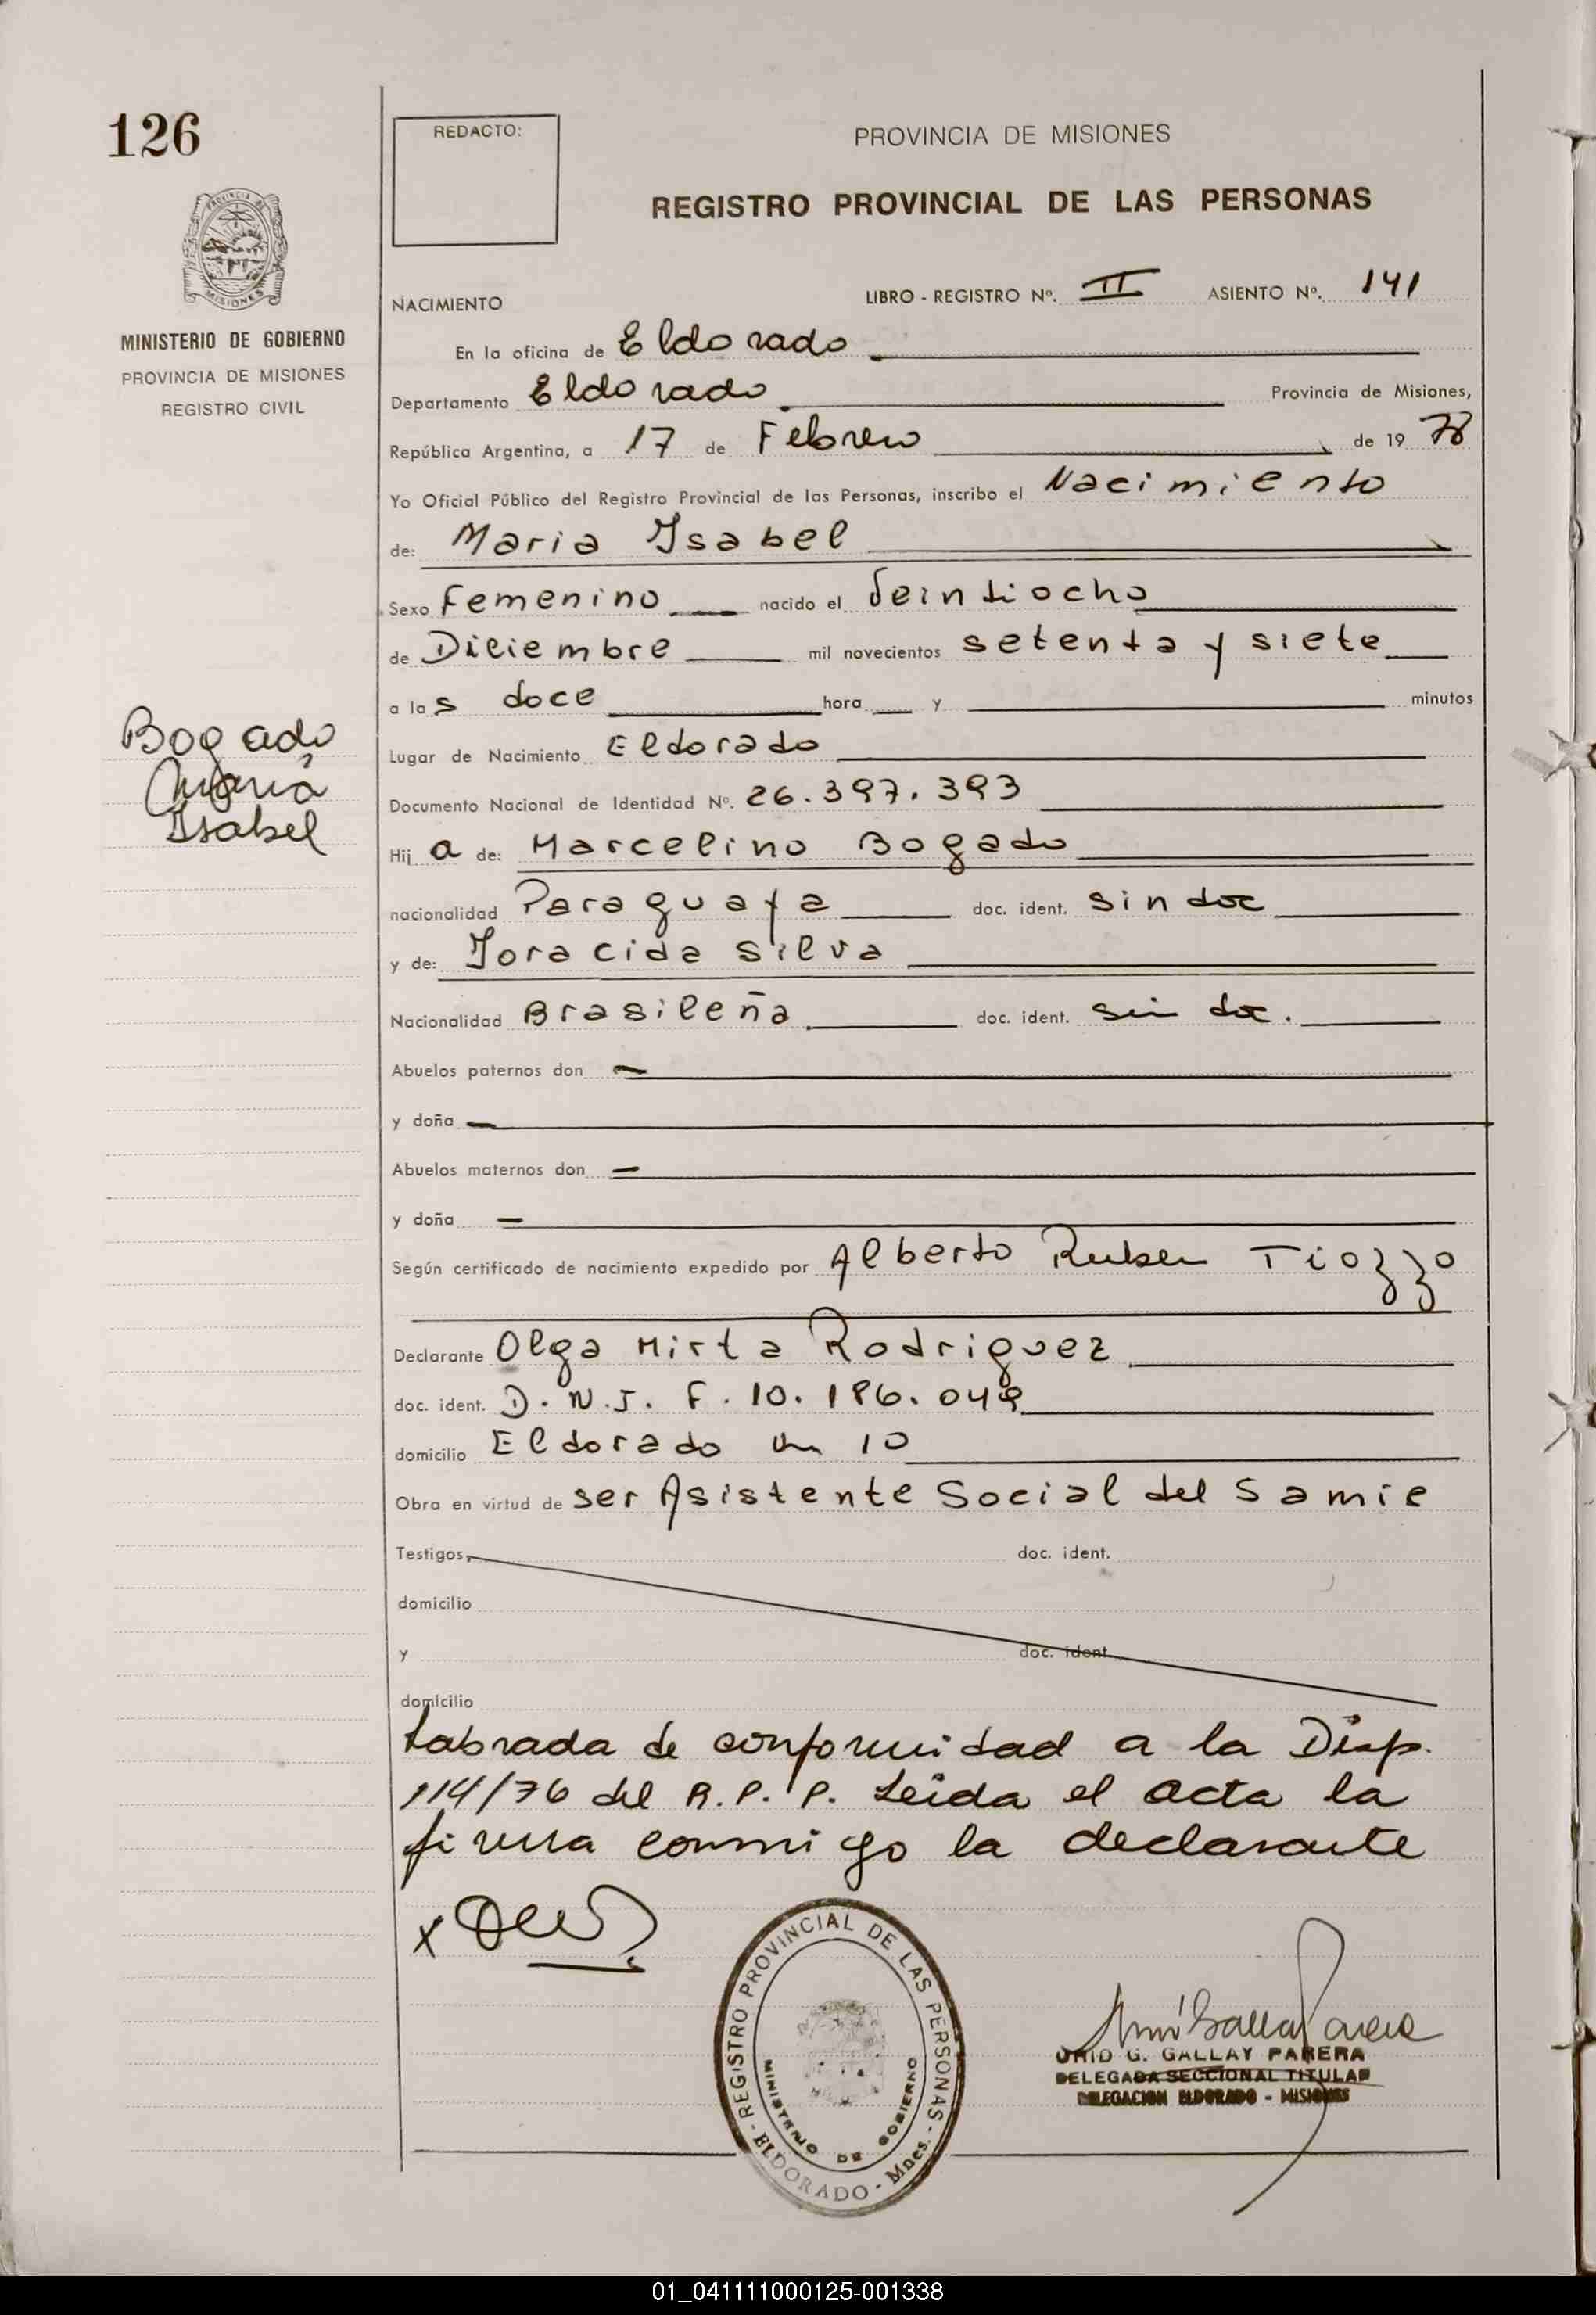 126
REDACTO:
PROVINCIA DE MISIONES
REGISTRO PROVINCIAL DE LAS PERSONAS
PROVINCIA DE
MISIONES
MINISTERIO DE GOBIERNO
PROVINCIA DE MISIONES
REGISTRO CIVIL
NACIMIENTO LIBRO - REGISTRO Nº. II ASIENTO Nº. 141
En la oficina de Eldorado
Departamento Eldorado Provincia de Misiones,
República Argentina, a 17 de Febrero de 19 78
Yo Oficial Público del Registro Provincial de las Personas, inscribo el Nacimiento
de: Maria Isabel
Sexo Femenino nacido el Veintiocho
de Diciembre mil novecientos setenta y siete
a las doce hora y minutos
Bogado
Maria
Isabel
Lugar de Nacimiento Eldorado
Documento Nacional de Identidad Nº. 26.397.393
Hija de: Marcelino Bogado
nacionalidad Paraguaya doc. ident. sin doc
y de: Joracida Silva
Nacionalidad Brasileña doc. ident. sin doc.
Abuelos paternos don
y doña
Abuelos maternos don
y doña
Según certificado de nacimiento expedido por Alberto Ruben Tiozzo
Declarante Olga Mirta Rodriguez
doc. ident. D.N.I. F. 10.186.049
domicilio Eldorado km 10
Obra en virtud de ser Asistente Social del Samic
Testigos, doc. ident.
domicilio
y doc. ident.
domicilio
Labrada de conformidad a la Disp.
114/76 del R.P.P. Leida el acta la
firma conmigo la declarante
x
REGISTRO PROVINCIAL DE LAS PERSONAS
MINISTERIO DE GOBIERNO
- ELDORADO - Mnes. -
G. GALLAY PARERA
DELEGADA SECCIONAL TITULAR
DELEGACION ELDORADO - MISIONES
01_041111000125-001338